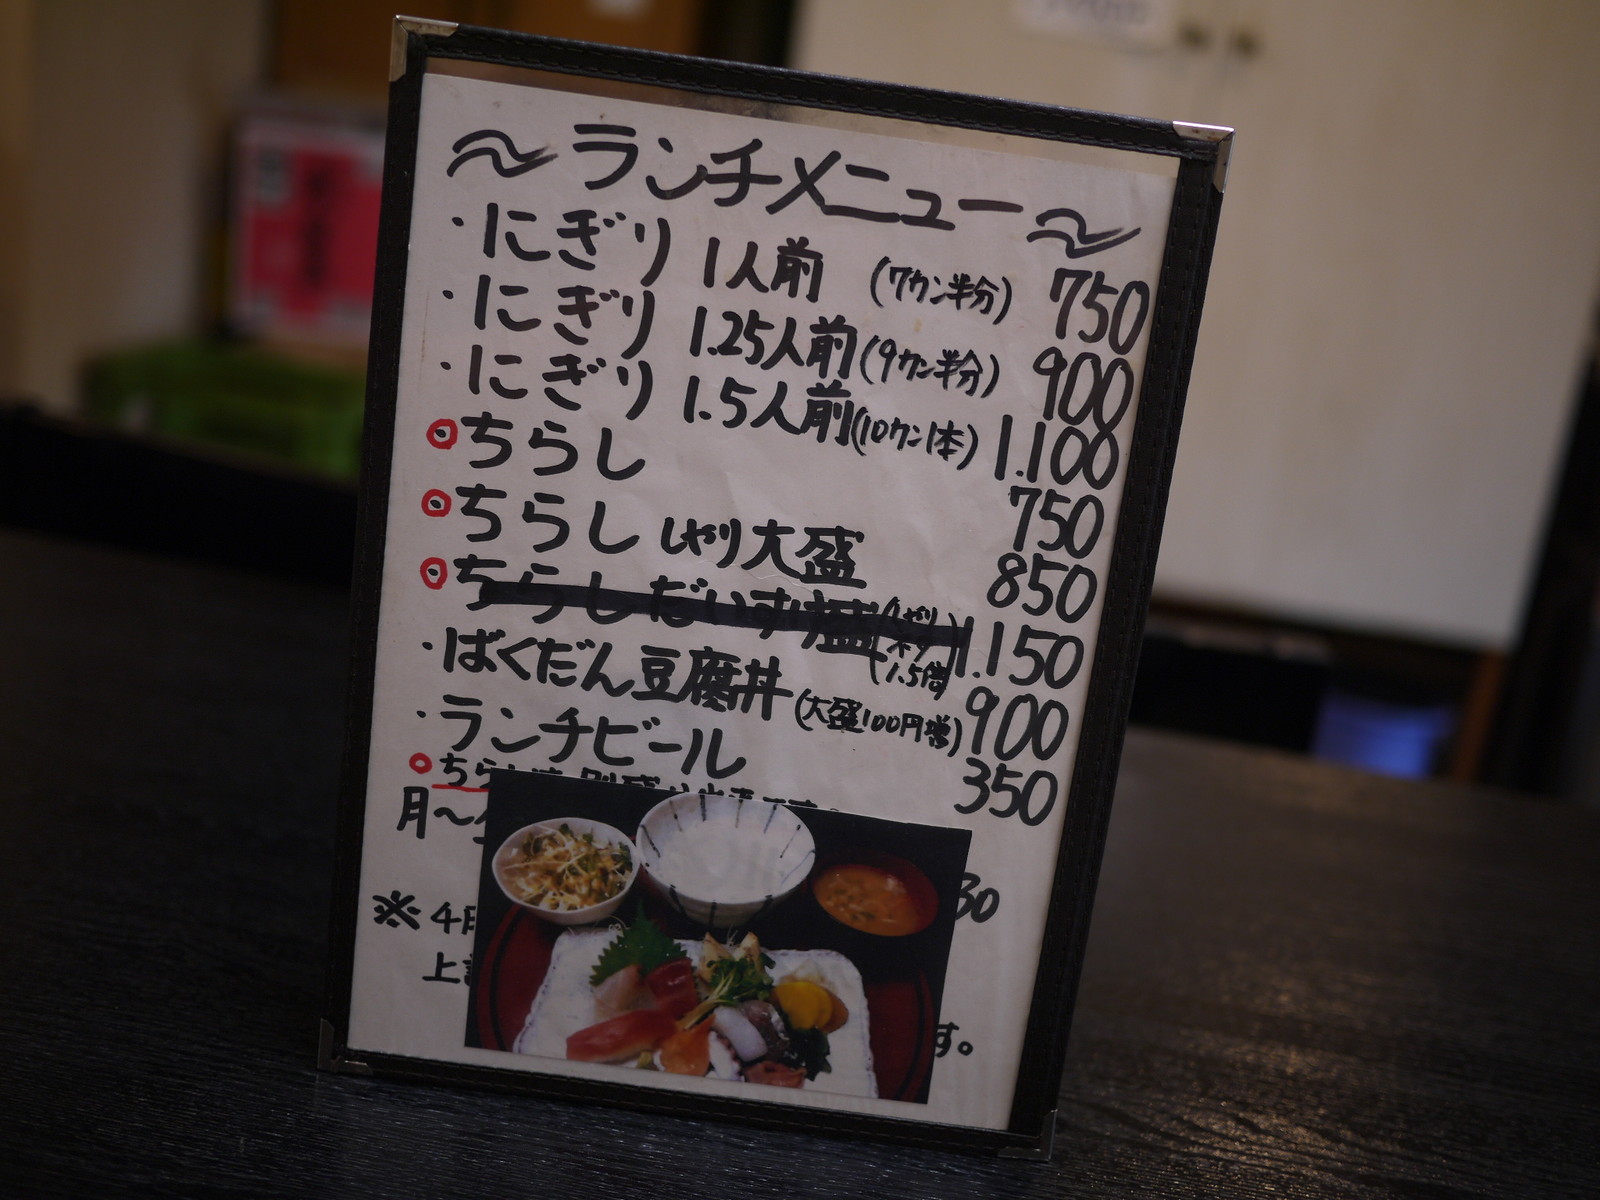 〜ランチメニュー〜
・にぎり 1人前 (7カン半分) 750
・にぎり 1.25人前 (9カン半分) 900
・にぎり 1.5人前 (10カン1本) 1.100
◎ちらし 750
◎ちらし しゃり大盛 850
◎ちらしだいすけ盛 (しゃり ネタ 1.5倍) 1.150
・ばくだん豆腐丼 (大盛100円増) 900
・ランチビール 350
○ちらし
月〜 30
※4月
上
す。